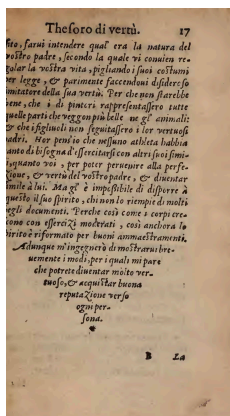 Thesoro di vertù. 17
sito, farui intendere qual era la natura del
vostro padre, secondo la quale vi conuien re-
golar la vostra vita, pigliando i suoi costumi
per legge, & parimente facendoui disideroso
imitatore della sua vertù. Per che non starebbe
bene, che i dipintori rappresentassero tutte
quelle parti che veggon più belle ne gl' animali:
& che i figliuoli non seguitassero i lor vertuosi
padri. Hor penso io che nessuno athleta habbia
tanto di bisogno d'essercitarsi con altri suoi simi-
li, quanto voi, per poter peruenire alla perfe-
zione, & vertù del vostro padre, & diuentar
simile à lui. Ma gl' è impossibile di disporre à
questo il suo spirito, chi non lo riempie di molti
begli documenti. Perche così come i corpi cre-
scono con essercizi moderati, così anchora lo
spirito è riformato per buoni ammaestramenti.
Adunque m'ingegnerò di mostrarui bre-
uemente i modi, per i quali mi pare
che potrete diuentar molto ver-
tuoso, & acquistar buona
reputazione verso
ogni per-
sona.
*
B La